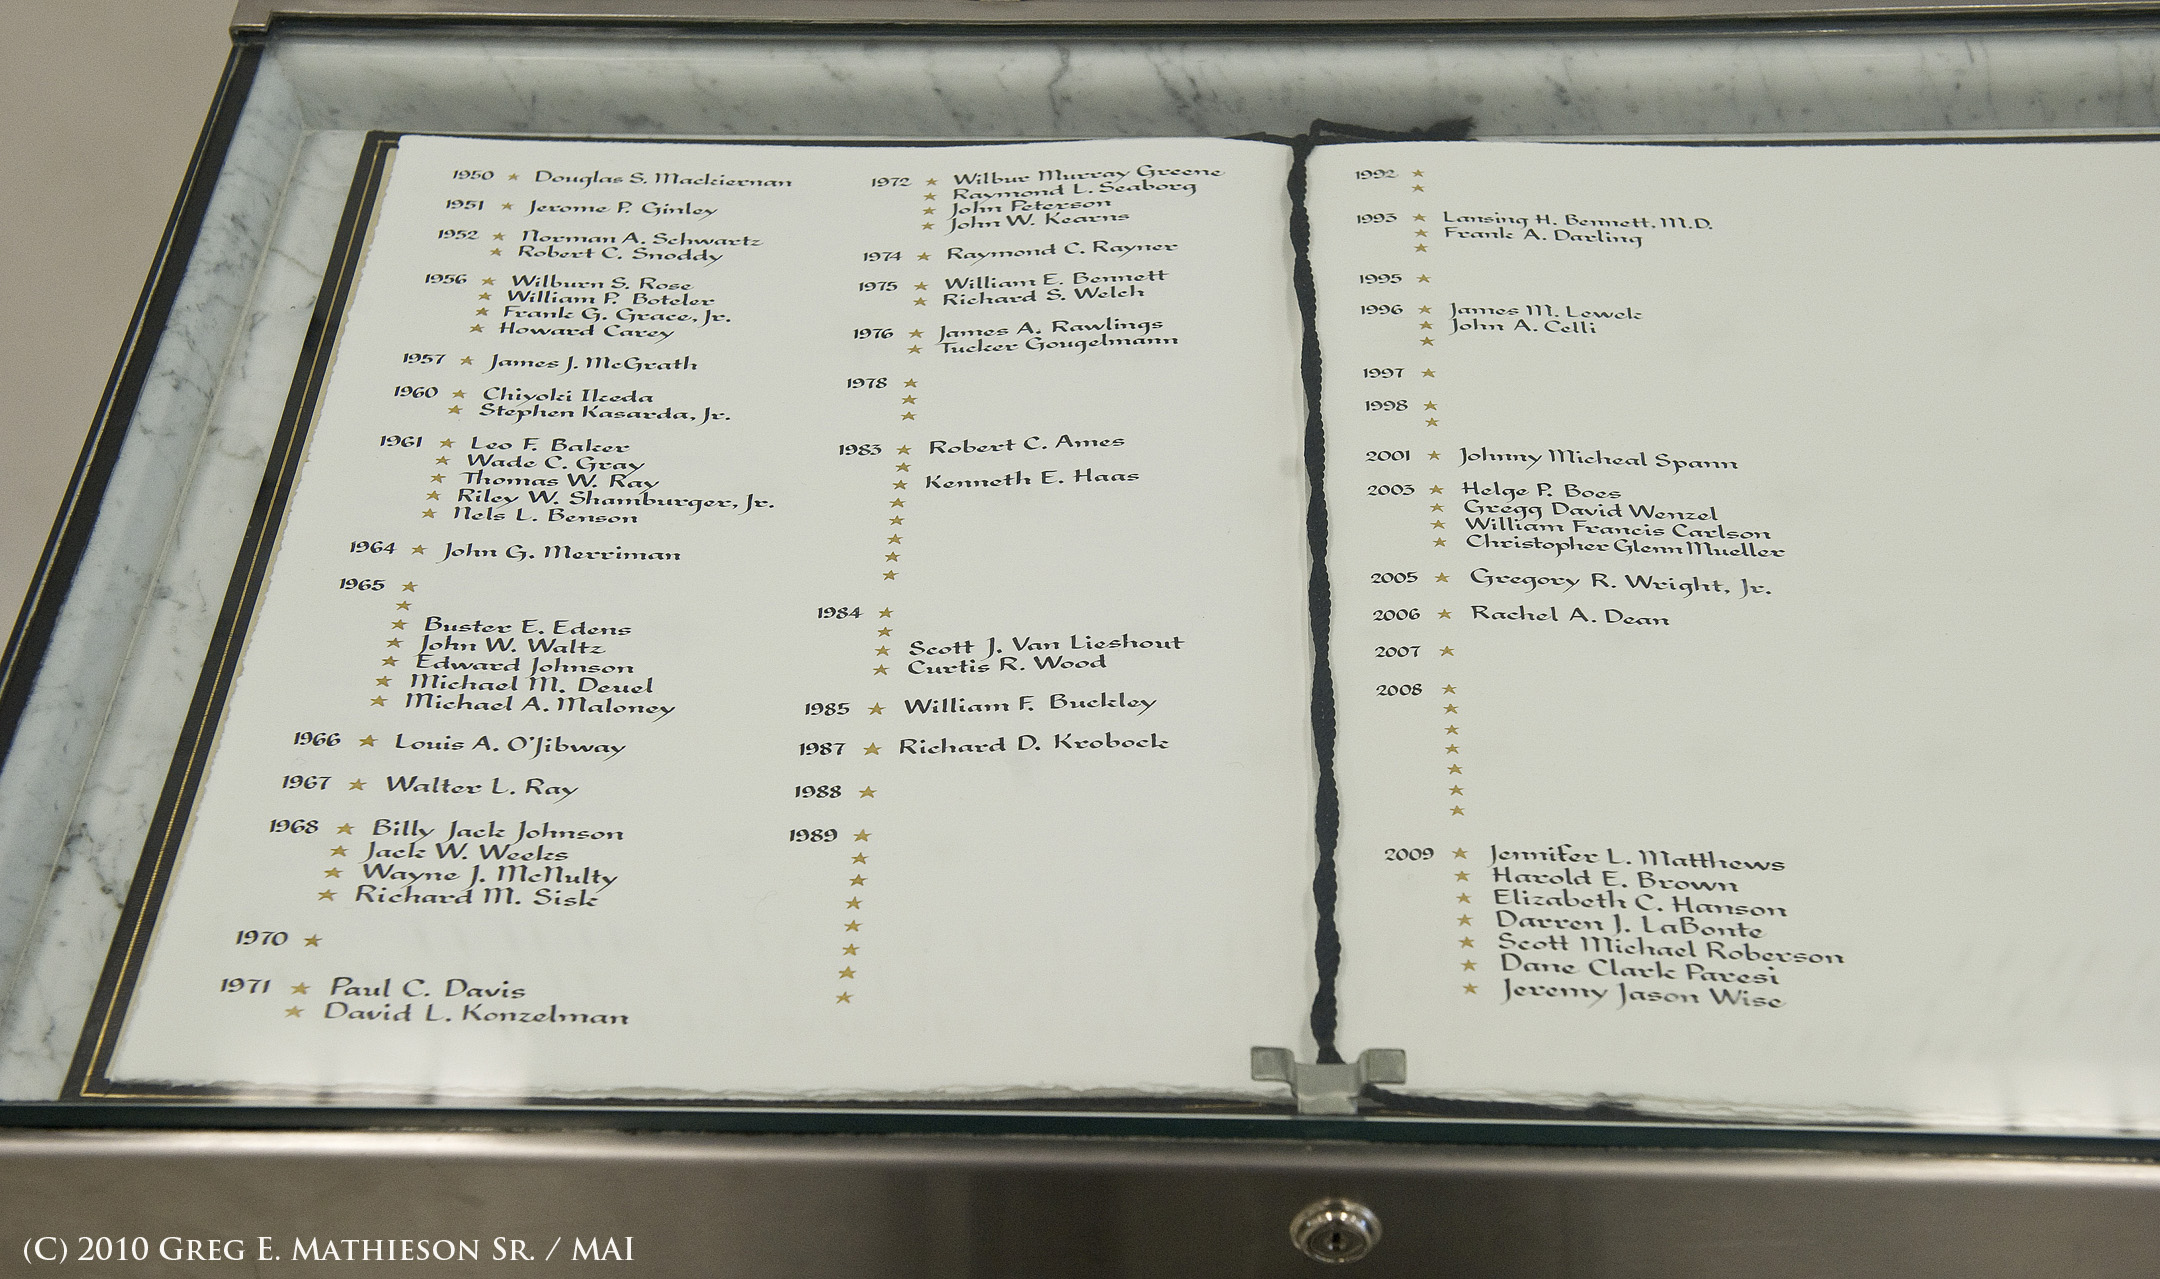 1950 ★ Douglas S. Mackiernan
1951 ★ Jerome P. Ginley
1952 ★ Norman A. Schwartz
★ Robert C. Snoddy
1956 ★ Wilburn S. Rose
★ William P. Boteler
★ Frank G. Grace, Jr.
★ Howard Carey
1957 ★ James J. McGrath
1960 ★ Chiyoki Ikeda
★ Stephen Kasarda, Jr.
1961 ★ Leo F. Baker
★ Wade C. Gray
★ Thomas W. Ray
★ Riley W. Shamburger, Jr.
★ Nels L. Benson
1964 ★ John G. Merriman
1965 ★
★
★ Buster E. Edens
★ John W. Waltz
★ Edward Johnson
★ Michael M. Deuel
★ Michael A. Maloney
1966 ★ Louis A. O'Jibway
1967 ★ Walter L. Ray
1968 ★ Billy Jack Johnson
★ Jack W. Weeks
★ Wayne J. McNulty
★ Richard M. Sisk
1970 ★
1971 ★ Paul C. Davis
★ David L. Konzelman
1972 ★ Wilbur Murray Greene
★ Raymond L. Seaborg
★ John Peterson
★ John W. Kearns
1974 ★ Raymond C. Rayner
1975 ★ William E. Bennett
★ Richard S. Welch
1976 ★ James A. Rawlings
★ Tucker Gougelmann
1978 ★
★
★
1983 ★ Robert C. Ames
★
★ Kenneth E. Haas
★
★
★
★
★
1984 ★
★
★ Scott J. Van Lieshout
★ Curtis R. Wood
1985 ★ William F. Buckley
1987 ★ Richard D. Krobock
1988 ★
1989 ★
★
★
★
★
★
★
★
1992 ★
★
1993 ★ Lansing H. Bennett, M.D.
★ Frank A. Darling
★
1995 ★
1996 ★ James M. Lewek
★ John A. Celli
★
1997 ★
1998 ★
★
2001 ★ Johnny Micheal Spann
2003 ★ Helge P. Boes
★ Gregg David Wenzel
★ William Francis Carlson
★ Christopher Glenn Mueller
2005 ★ Gregory R. Wright, Jr.
2006 ★ Rachel A. Dean
2007 ★
2008 ★
★
★
★
★
★
★
2009 ★ Jennifer L. Matthews
★ Harold E. Brown
★ Elizabeth C. Hanson
★ Darren J. LaBonte
★ Scott Michael Roberson
★ Dane Clark Paresi
★ Jeremy Jason Wise
(C) 2010 Greg E. Mathieson Sr. / MAI